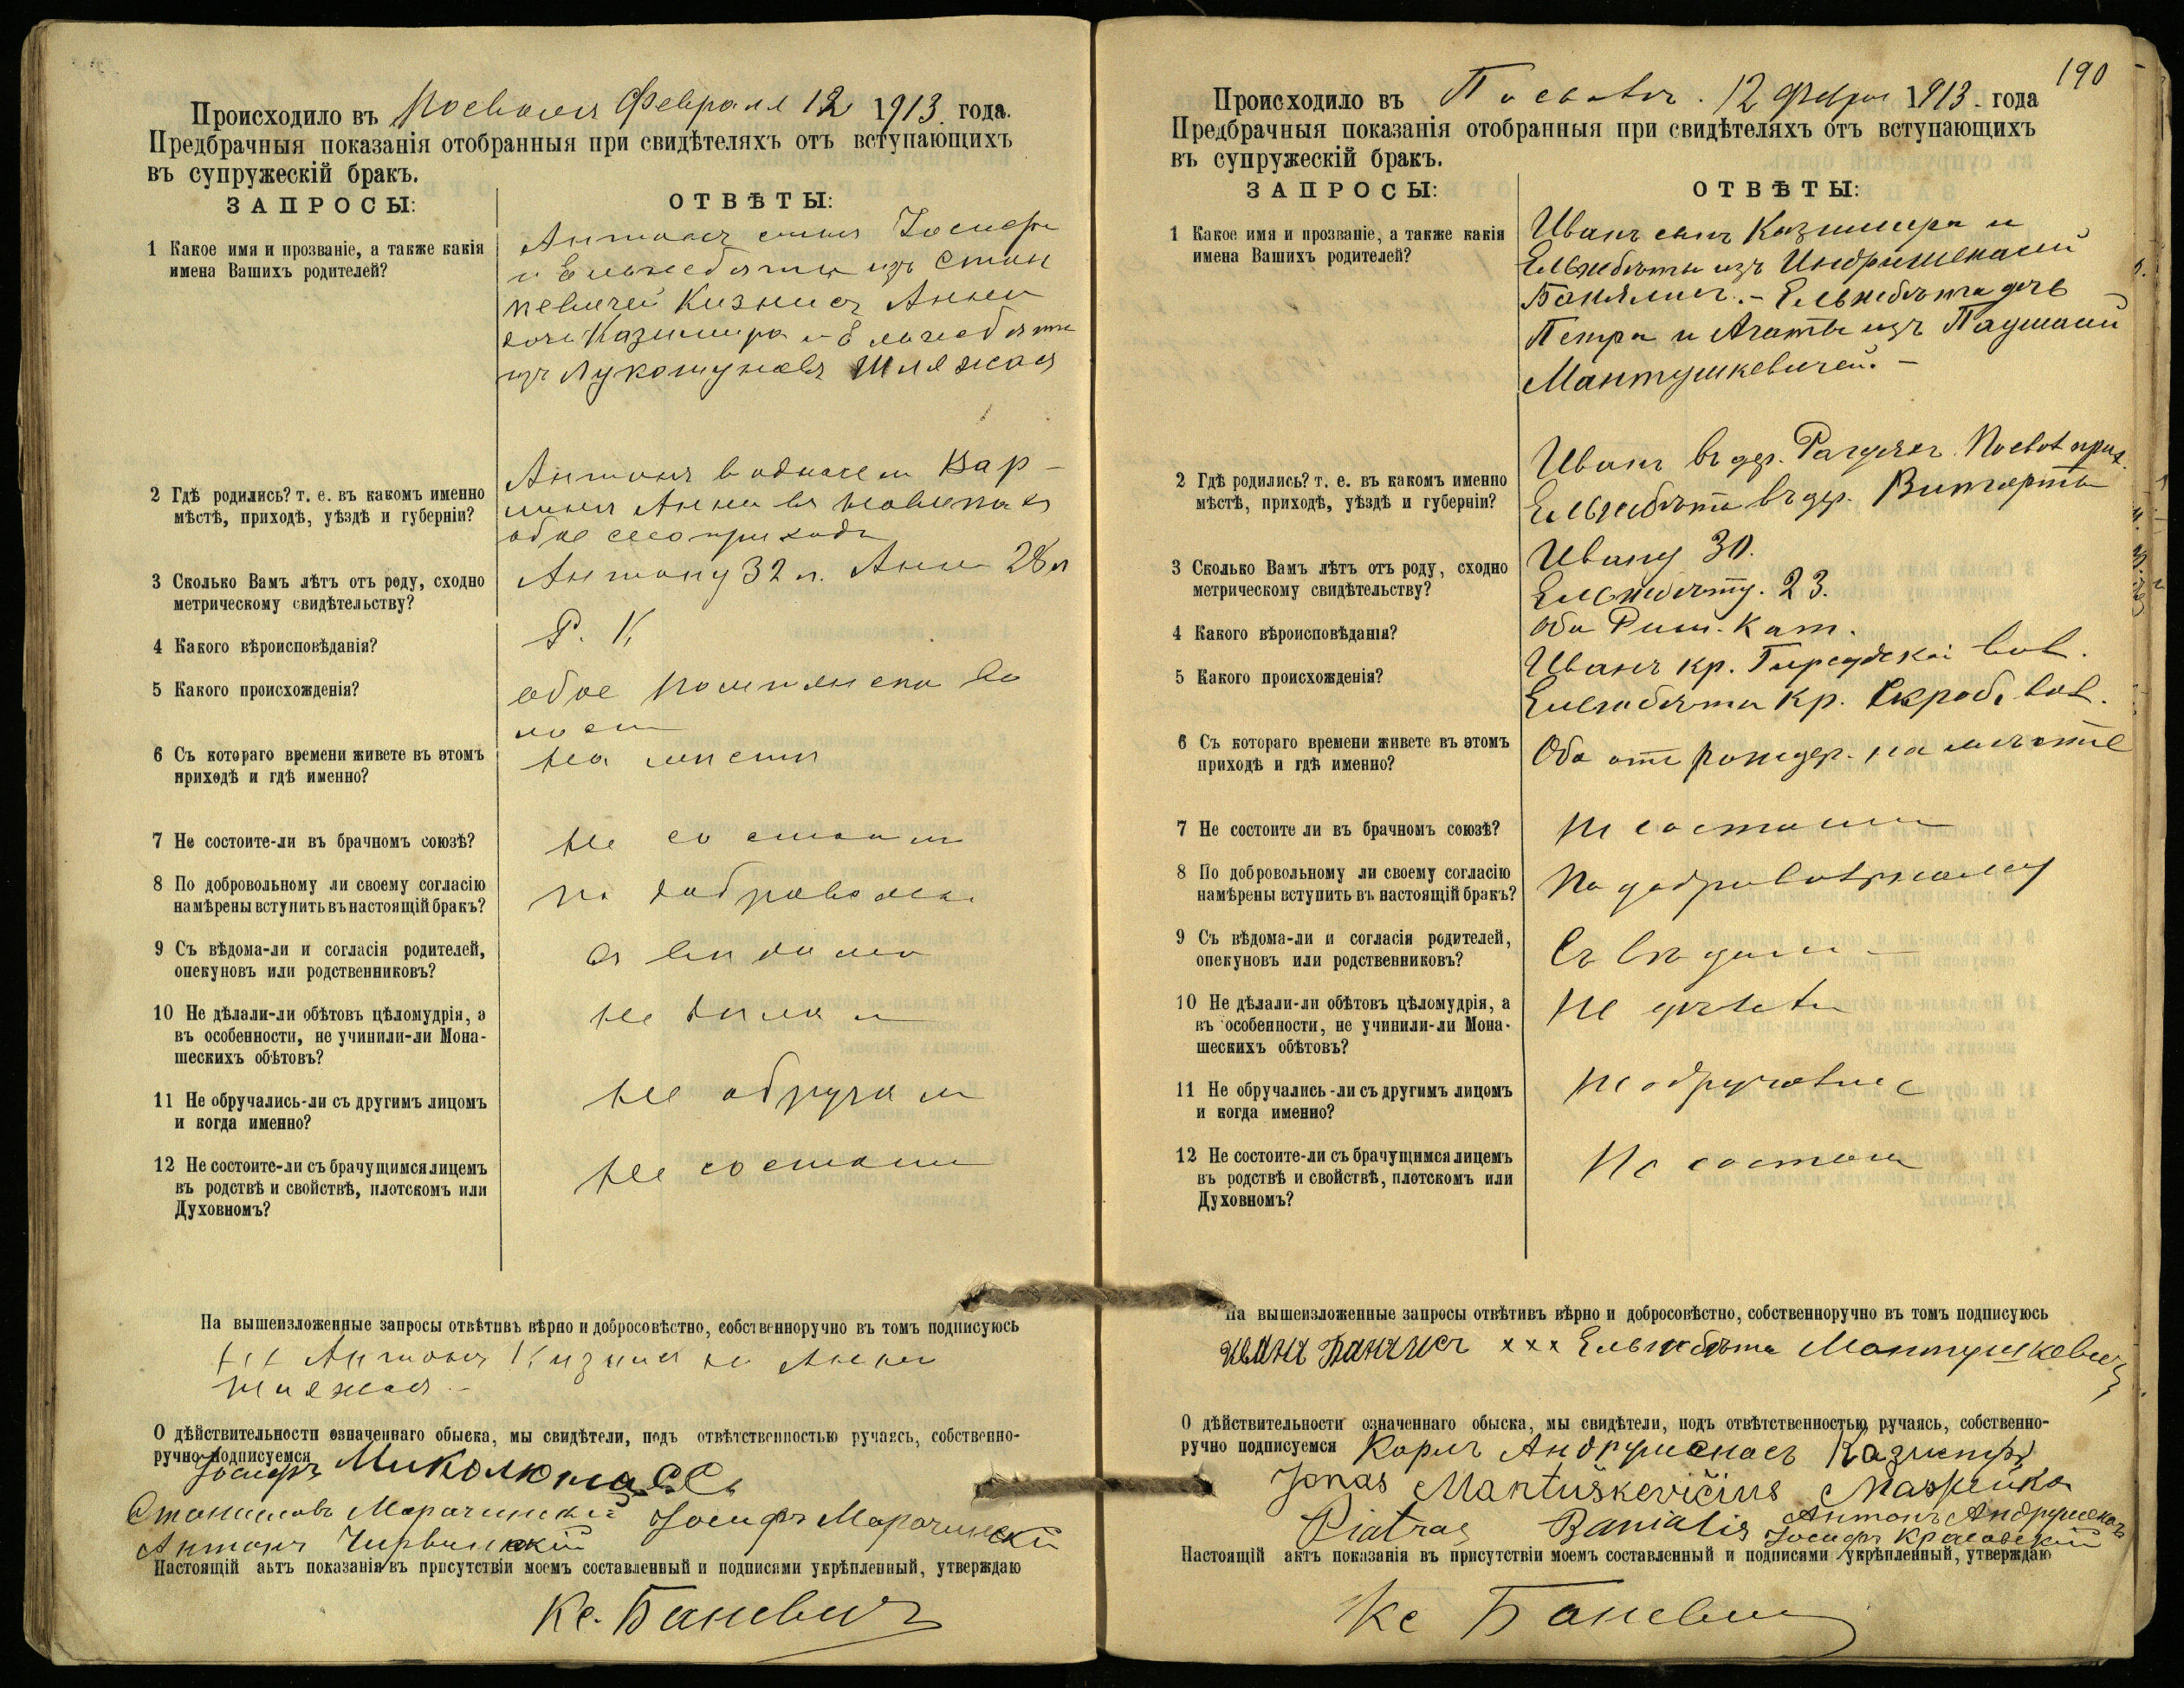 Происходило въ Посволя Февраля 12 1913 года.
Предбрачныя показанія отобранныя при свидѣтеляхъ отъ вступающихъ
въ супружескій бракъ.
ЗАПРОСЫ:
ОТВѢТЫ:
1 Какое имя и прозваніе, а также какія
имена Вашихъ родителей?
Антонъ сынъ Іосифа
и Ельжебяты изъ Стан
кевичей Кизнисъ Анна
дочь Казимира и Ельжебяты
изъ Лукошуновъ
2 Гдѣ родились? т. е. въ какомъ именно
мѣстѣ, приходѣ, уѣздѣ и губерніи?
Антонъ
Анна въ
обое сего прихода
3 Сколько Вамъ лѣтъ отъ роду, сходно
метрическому свидѣтельству?
Антону 32 л. Анне 28 л
4 Какого вѣроисповѣданія?
Р. К
5 Какого происхожденія?
обое во
лост
6 Съ котораго времени живете въ этомъ
приходѣ и гдѣ именно?
На мистя
7 Не состоите-ли въ брачномъ союзѣ?
Не состоим
8 По добровольному ли своему согласію
намѣрены вступить въ настоящій бракъ?
по
9 Съ вѣдома-ли и согласія родителей,
опекуновъ или родственниковъ?
Съ видома
10 Не дѣлали-ли обѣтовъ цѣломудрія, а
въ особенности, не учинили-ли Мона-
шескихъ обѣтовъ?
Не дилали
11 Не обручались-ли съ другимъ лицомъ
и когда именно?
Не обручали
12 Не состоите-ли съ брачущимся лицемъ
въ родствѣ и свойствѣ, плотскомъ или
Духовномъ?
Не состоим
На вышеизложенные запросы отвѣтивъ вѣрно и добросовѣстно, собственноручно въ томъ подписуюсь
+++ Антонъ Кизнис Анна
О дѣйствительности означеннаго обыска, мы свидѣтели, подъ отвѣтственностью ручаясь, собственно-
ручно подписуемся
Іосифъ Миколюнасъ
Станиславъ Марачинскій Іосифъ Марачинскій
Антонъ Чирвинскій
Настоящій актъ показанія въ присутствіи моемъ составленный и подписями укрѣпленный, утверждаю
Кс. Баневичъ
190
Происходило въ Посволѣ. 12 Февра 1913. года
Предбрачныя показанія отобранныя при свидѣтеляхъ отъ вступающихъ
въ супружескій бракъ.
ЗАПРОСЫ:
ОТВѢТЫ:
1 Какое имя и прозваніе, а также какія
имена Вашихъ родителей?
Иванъ сынъ Казимира и
Ельжбѣты изъ
Банялисъ. - Ельжбѣта дочь
Петра и Агаты изъ
Мантушкевичей. -
2 Гдѣ родились? т. е. въ какомъ именно
мѣстѣ, приходѣ, уѣздѣ и губерніи?
Иванъ въ дер. Посвол прих.
Ельжбѣта въ дер.
3 Сколько Вамъ лѣтъ отъ роду, сходно
метрическому свидѣтельству?
Ивану 30.
Ельжбѣту. 23.
4 Какого вѣроисповѣданія?
Оба Рим. Кат.
5 Какого происхожденія?
Иванъ кр. вол.
Ельжбѣта кр. Скроб. вол.
6 Съ котораго времени живете въ этомъ
приходѣ и гдѣ именно?
Оба отъ на мѣстѣ
7 Не состоите ли въ брачномъ союзѣ?
Не состоим
8 По добровольному ли своему согласію
намѣрены вступить въ настоящій бракъ?
По добровольному
9 Съ вѣдома-ли и согласія родителей,
опекуновъ или родственниковъ?
Съ вѣдома
10 Не дѣлали-ли обѣтовъ цѣломудрія, а
въ особенности, не учинили-ли Мона-
шескихъ обѣтовъ?
Не дѣлали
11 Не обручались-ли съ другимъ лицомъ
и когда именно?
Не обручались
12 Не состоите-ли съ брачущимся лицемъ
въ родствѣ и свойствѣ, плотскомъ или
Духовномъ?
Не состоим
На вышеизложенные запросы отвѣтивъ вѣрно и добросовѣстно, собственноручно въ томъ подписуюсь
Иванъ Банялисъ ××× Ельжбѣта Мантушкевичъ
О дѣйствительности означеннаго обыска, мы свидѣтели, подъ отвѣтственностью ручаясь, собственно-
ручно подписуемся Карлъ Андрушенасъ Казимѣръ
Jonas Mantuškevičius Мажейка
Piatras Banialis Антонъ
Іосифъ Красовскій
Настоящій актъ показанія въ присутствіи моемъ составленный и подписями укрѣпленный, утверждаю
Кс Баневич